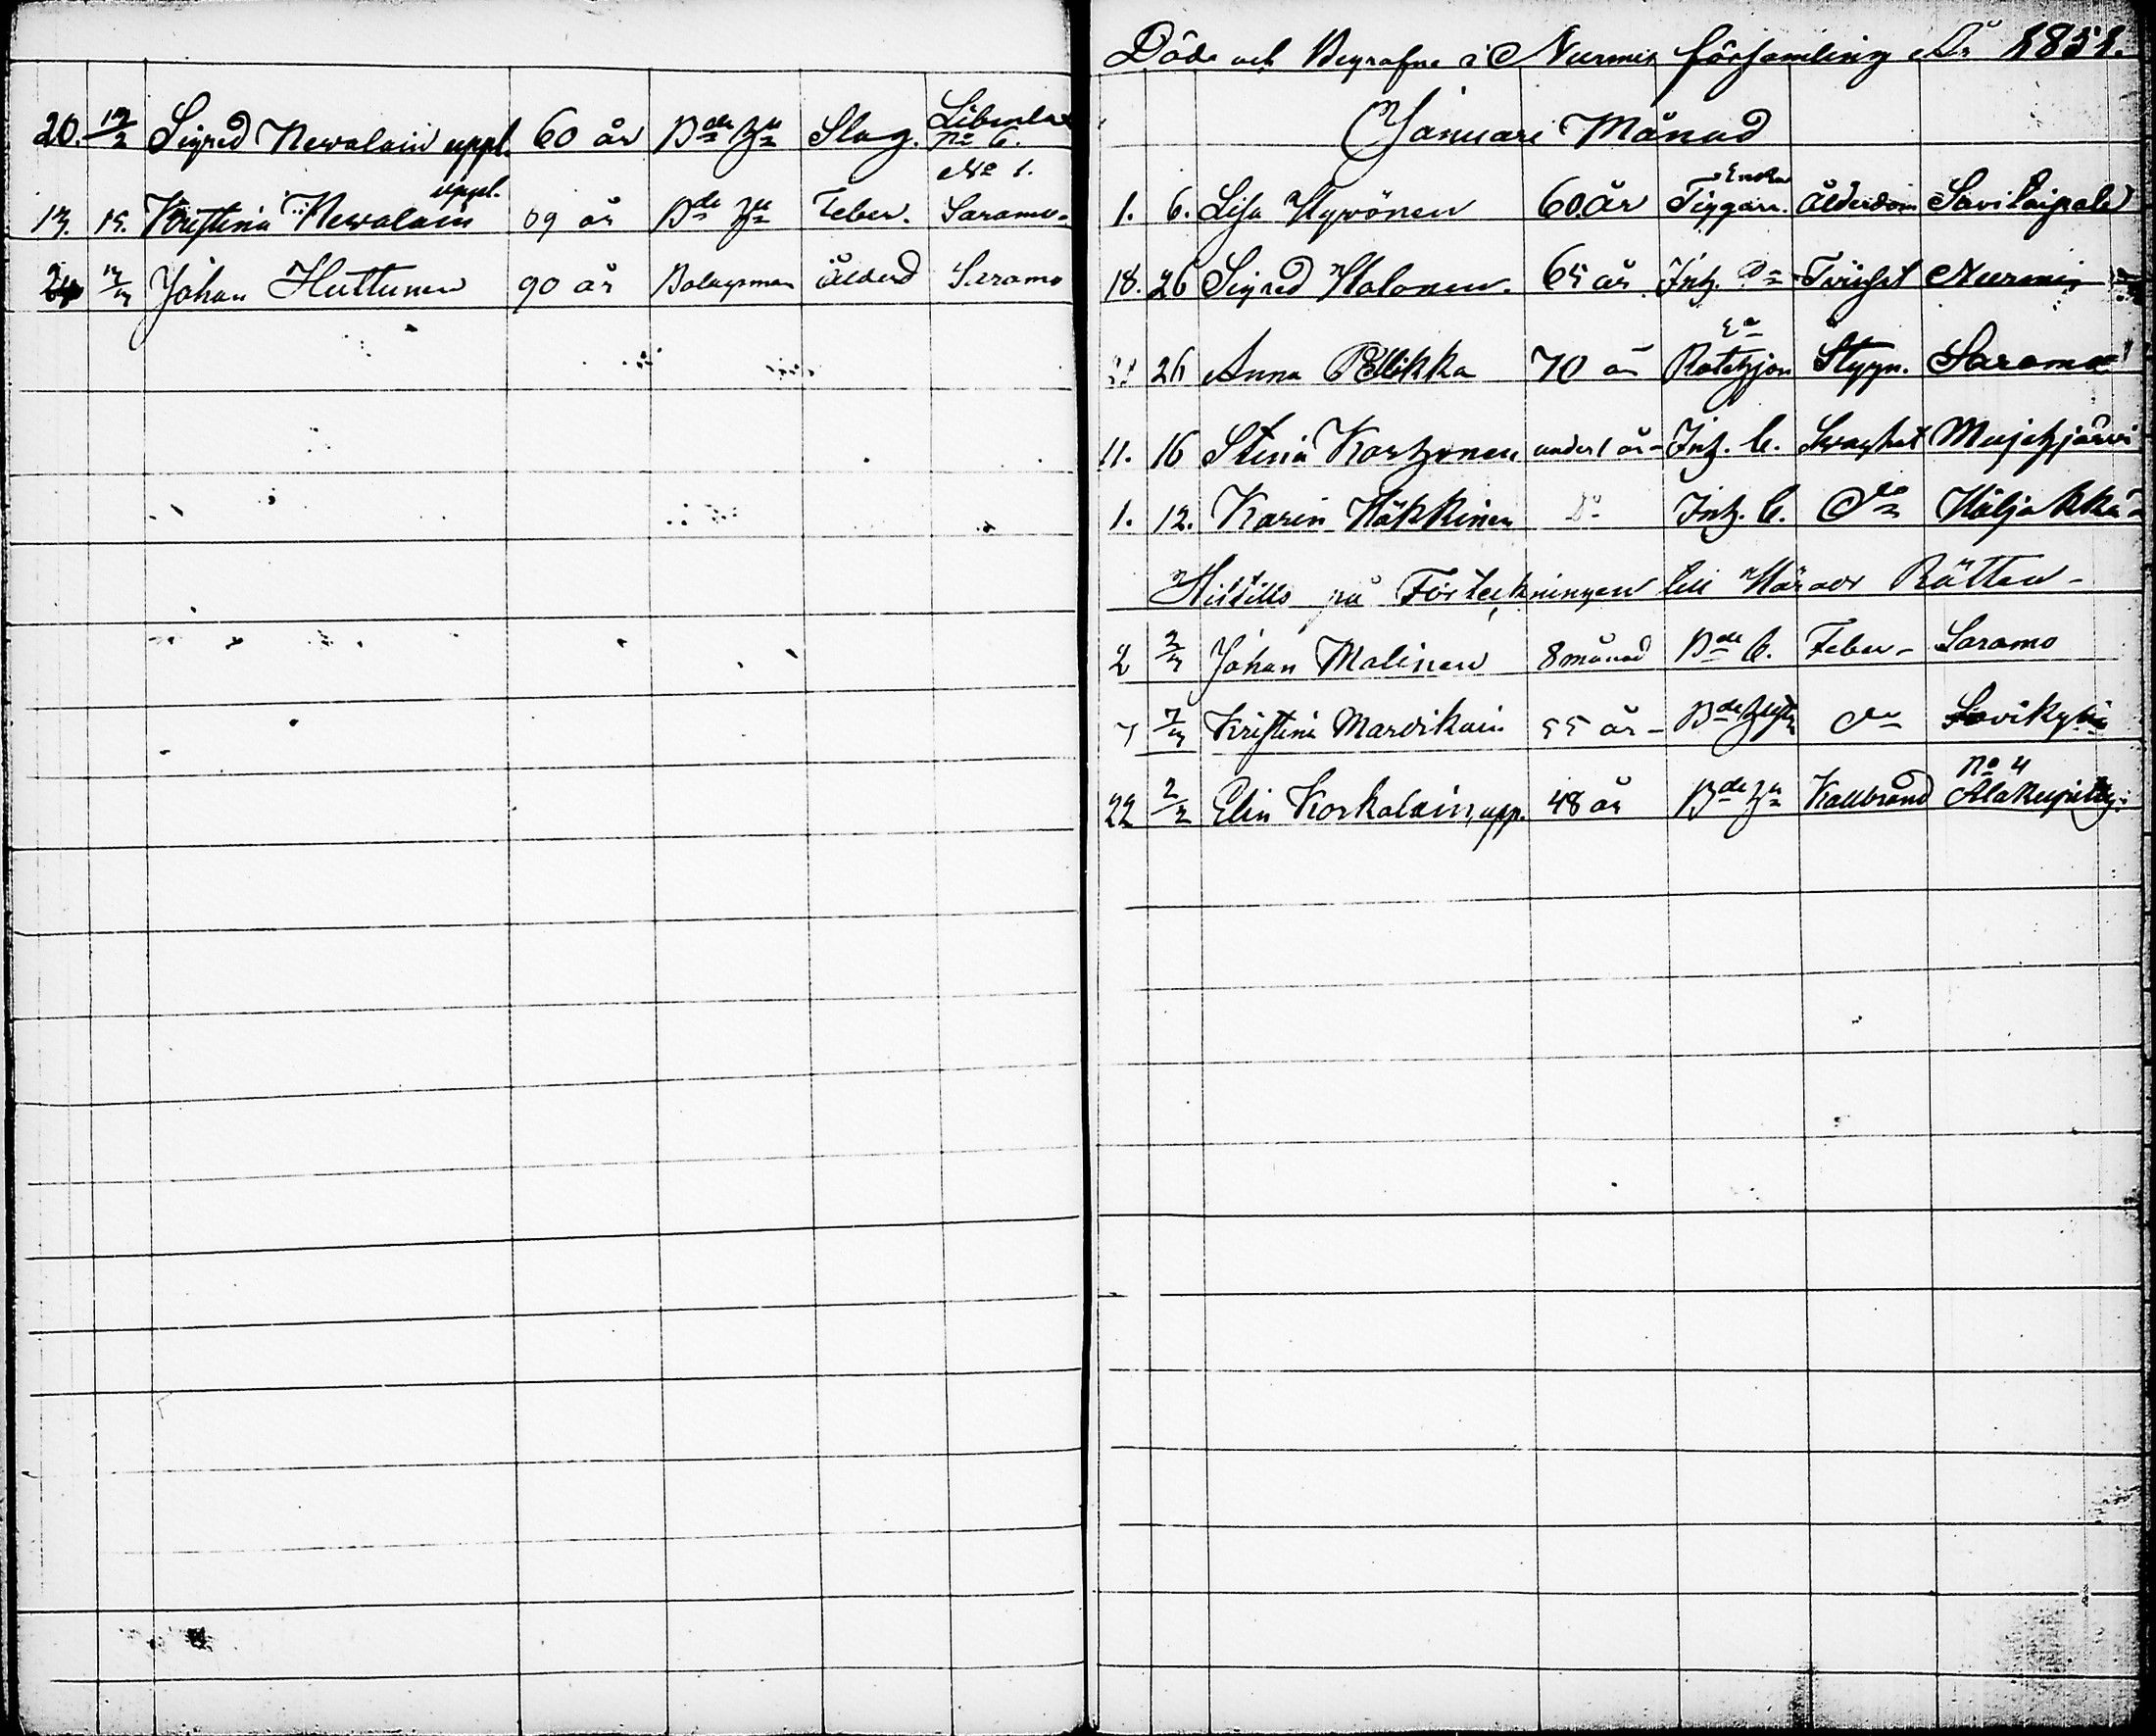 20. 12/2 Sigred Newalain uppl. 60 år Bde Hu Slag. Libenla No 6.
13. 15. Kristina Newalain uppl. 69 år Bde Hu Feber. No 1. Saramo
24 12/3 Johan Huttunen 90 år Bolagsman Ålderd Saramo
Döde och Begrafne i Nurmis församling År 1851.
Januari Månad
1. 6. Lisa Hyvönen 60 år Enka Tiggare. Ålderdom Savitaipale
18. 26 Sigred Halonen. 65 år Inh. Tvinsot Nurmis
26 Anna Pellikka 70 år Ea Rotehjon Stygn. Saramo
11. 16 Stina Korhonen under 1 år Inh. b. Svaghet Mujejärvi
1. 12. Karin Häkkinen Do Inh. b. do Höljäkkä
Hittills på Förteckningen till Härads Rätten
2 2/3 Johan Malinen 8 månad Bde b. Feber Saramo
7 7/3 Kristina Marvikain 55 år Bde do Savikylä
22 2/2 Elin Korkalain, upp. 48 år Bde Hu Kallbrand No 4